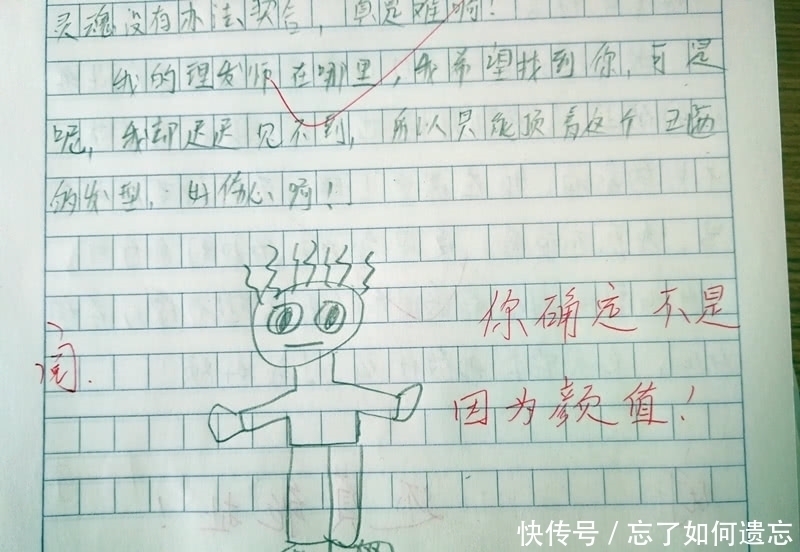 灵魂没有办法契合，真是难啊！
我的理发师在哪里，我希望找到你，可是
呢，我却迟迟见不到，所以只能顶着这个丑陋
的发型，好伤心啊！
你确定不是
阅.
因为颜值！
快传号／忘了如何遗忘